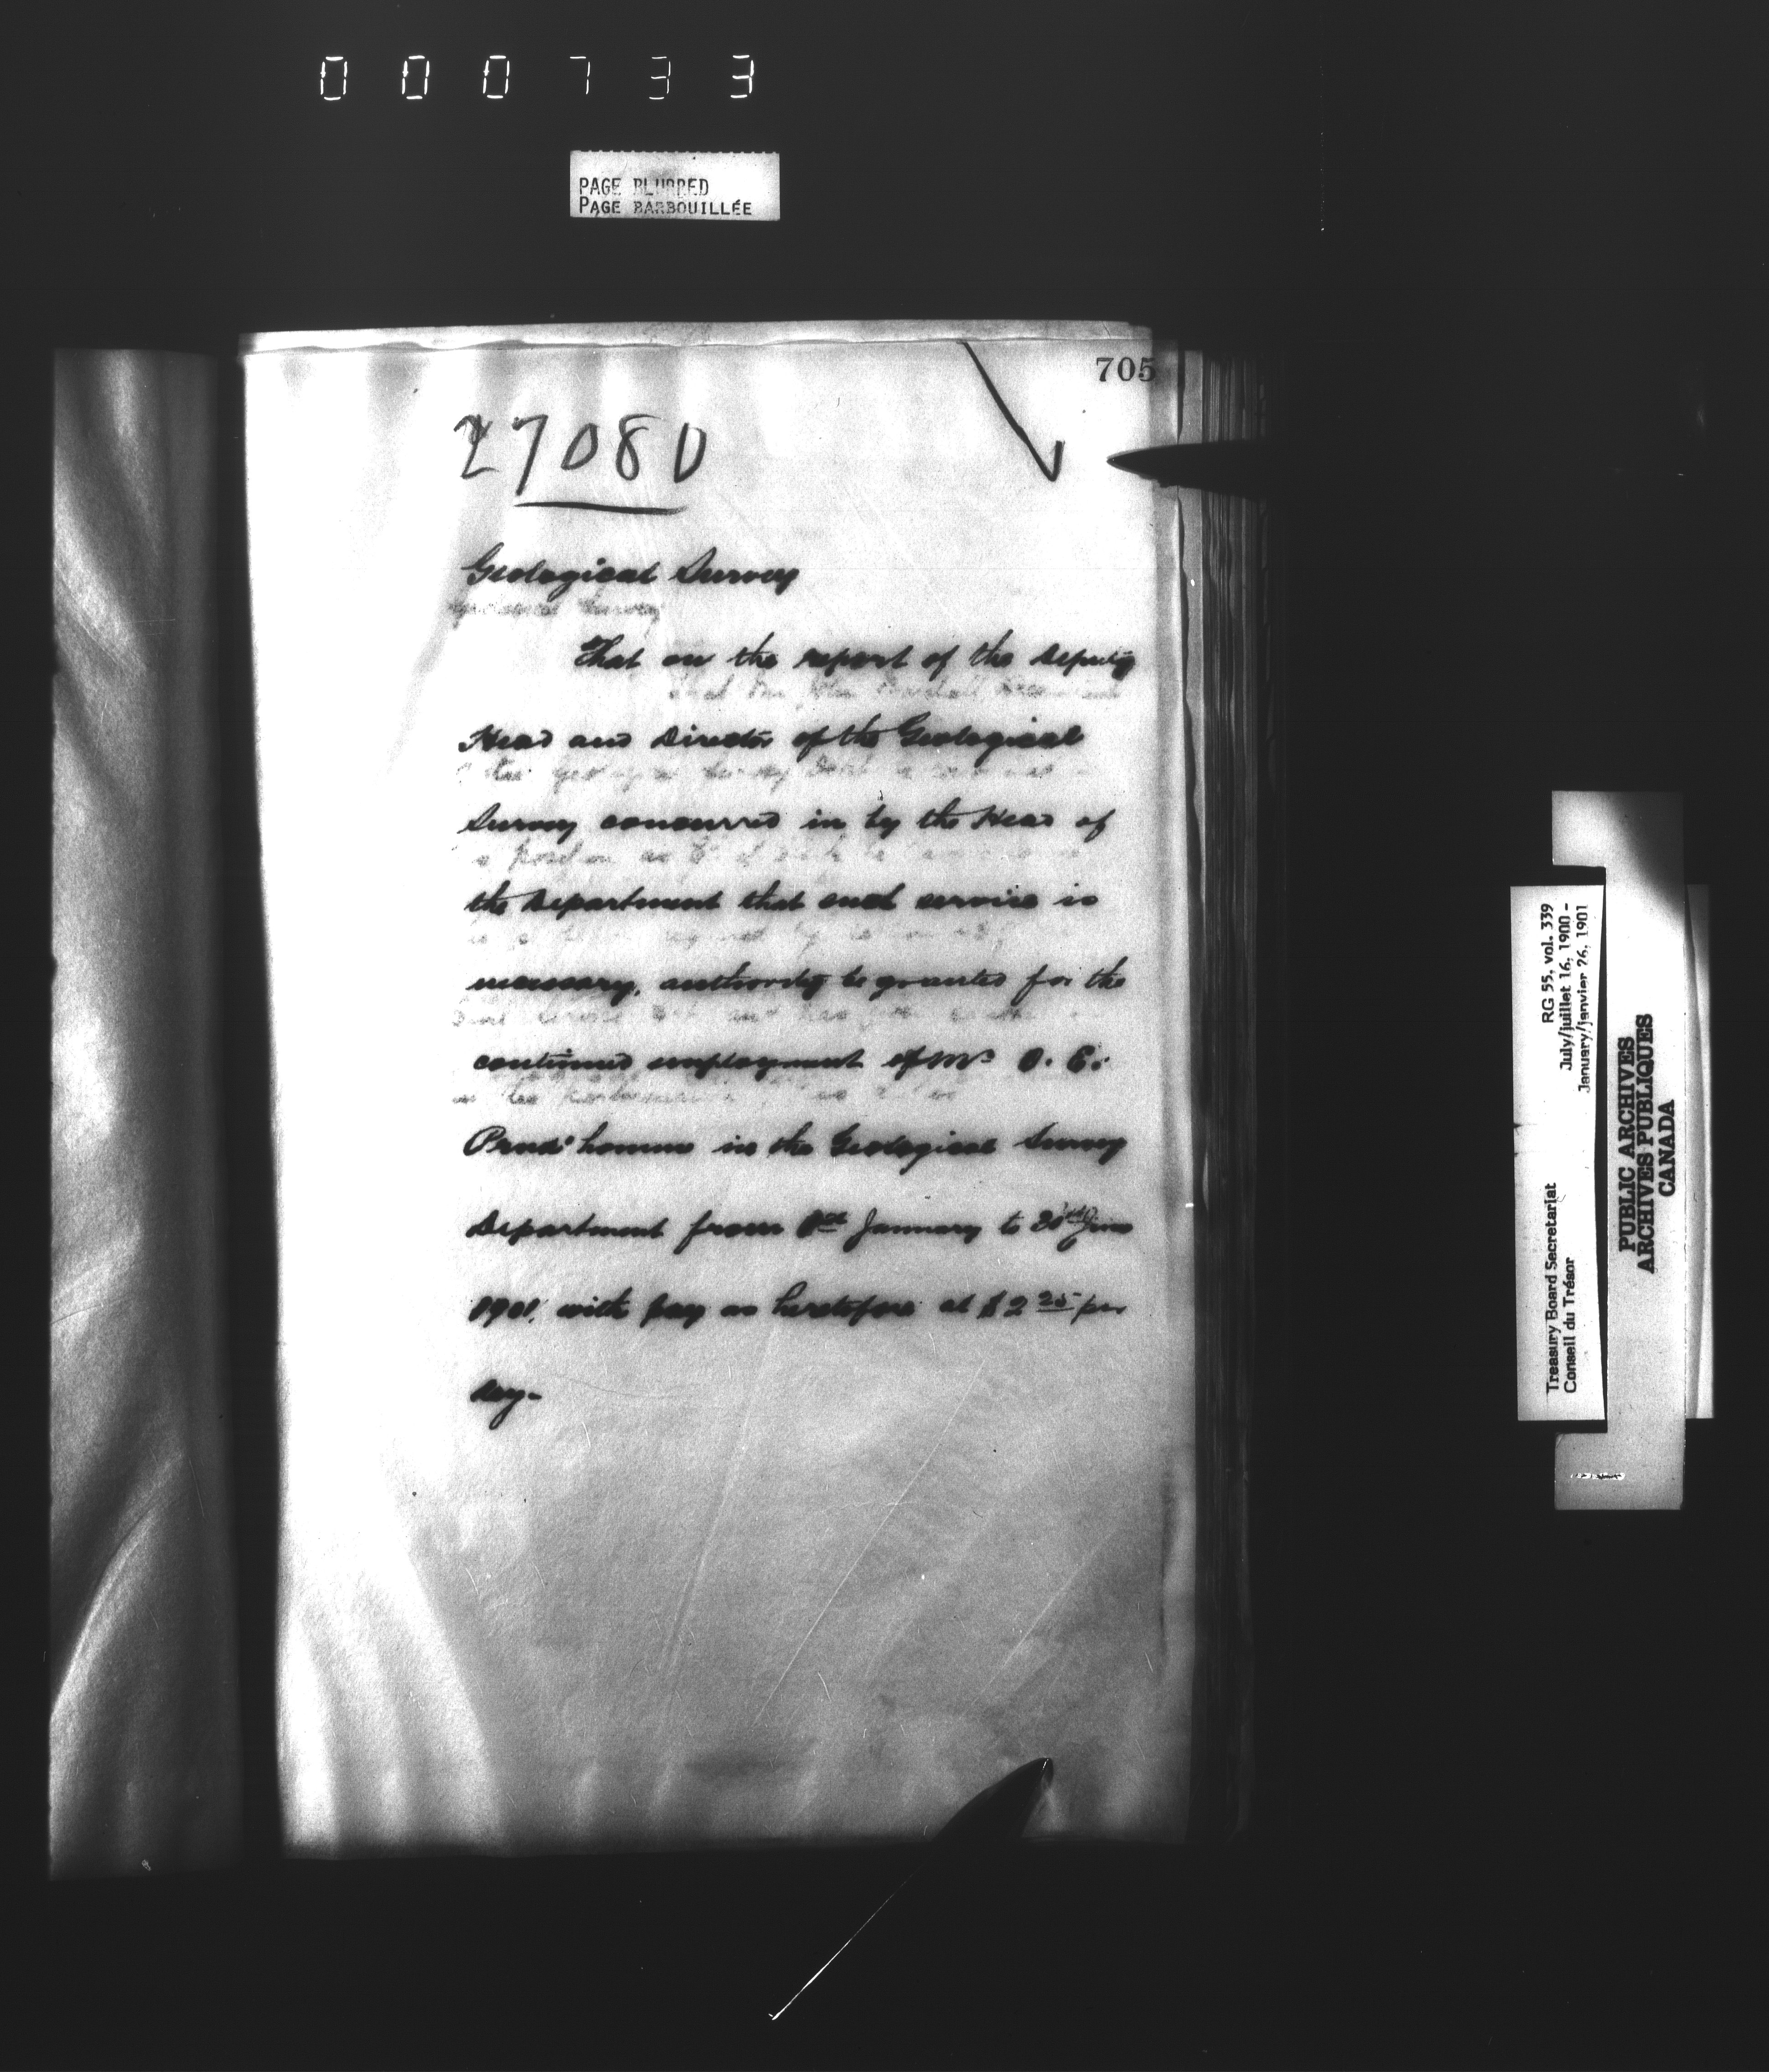 000733
PAGE BLURRED
PAGE BARBOUILLÉE
705
27080
Geological Survey
That on the report of the Deputy
Head and Director of the Geological
Survey concurred in by the Head of
the Department that such service is
necessary, authority be granted for the
continued employment of Mr O. E.
Prud'homme in the Geological Survey
Department from 1st January to 30th June
1901, with pay as heretofore at $2 25 per
day-
RG 55, vol. 339
July/juillet 16, 1900 -
January/janvier 26, 1901
Treasury Board Secretariat
Conseil du Trésor
PUBLIC ARCHIVES
ARCHIVES PUBLIQUES
CANADA